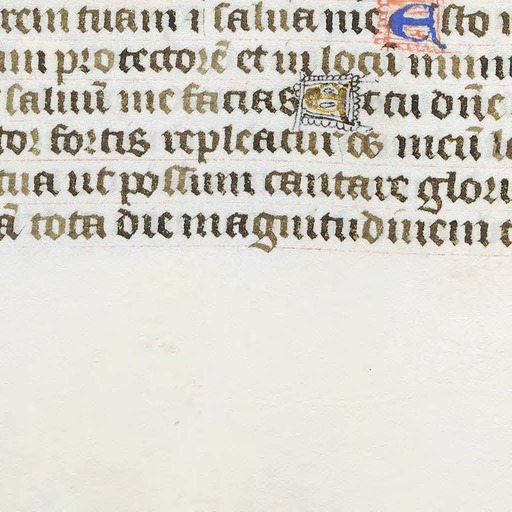 rem tuam ⁊ salua me Esto
am protectorē et in locū muni
saluū me facias Et tu dn̄e
tor fortis repleatur os meū
tua ut possum cantare glori
ā tota die magnitudinem